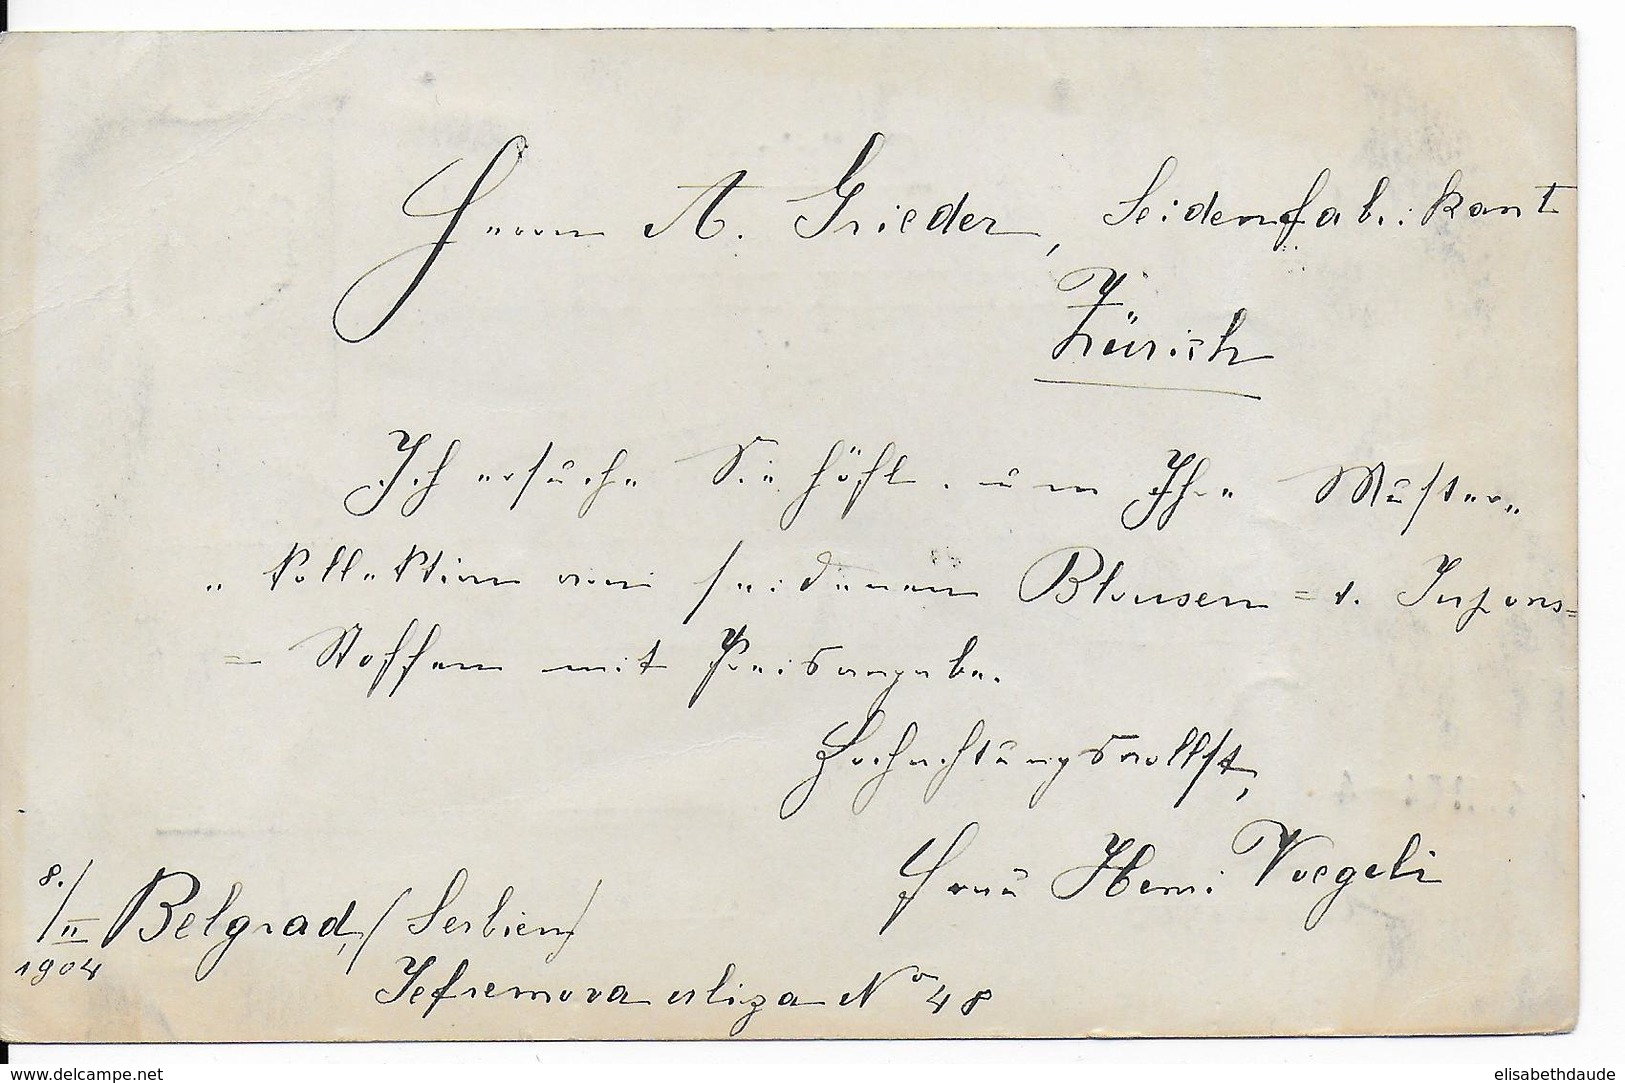 Herrn A. Grieder, Seidenfabrikant
Zürich
Ich ersuche Sie höfl. um Ihre Muster„
„kollektion von seidenen Blousen= u. Jupons=
=Stoffen mit Preisangabe.
Hochachtungsvollst,
Frau Henri Voegeli
8./II 1904 Belgrad, (Serbien)
Jefremova uliza No 48
www.delcampe.net
elisabethdaude